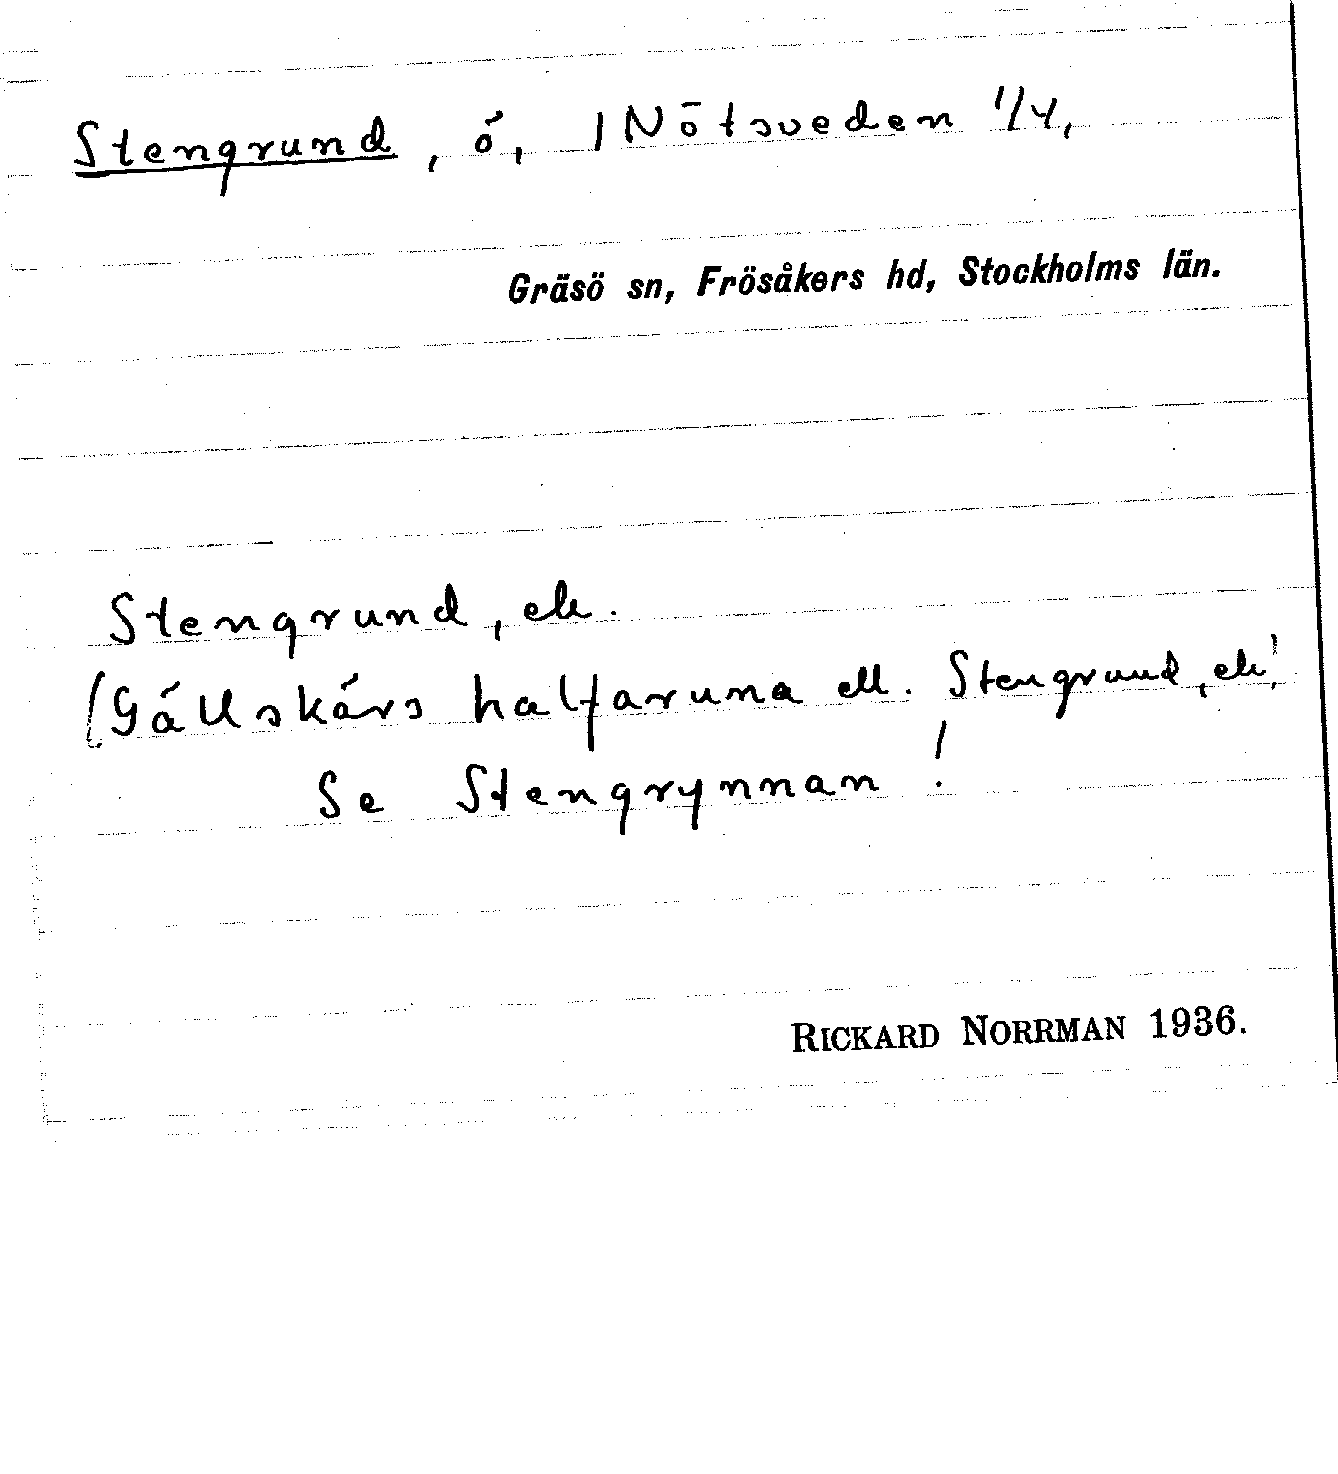 Stengrund, ö, 1 Nötsveden 1/4,
Gräsö sn, Frösåkers hd, Stockholms län.
Stengrund, ek.
(Gällskärs halfaruna ell. Stengrund, ek!
Se Stengrynnan!
RICKARD NORRMAN 1936.